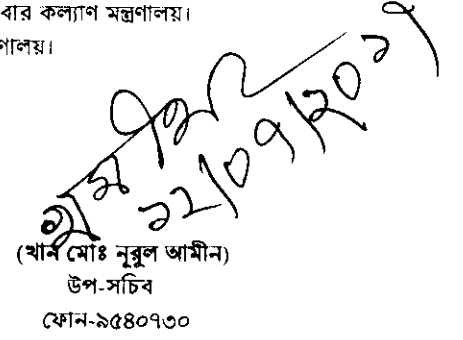 বার কল্যাণ মন্ত্রণালয়।
ণালয়।
১২/০৭/২০১৭
(খান মোঃ নূরুল আমীন)
উপ-সচিব
ফোন-৯৫৪০৭৩০